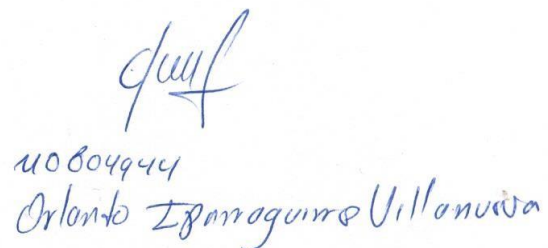 40804944
Orlando Iparraguirre Villanueva